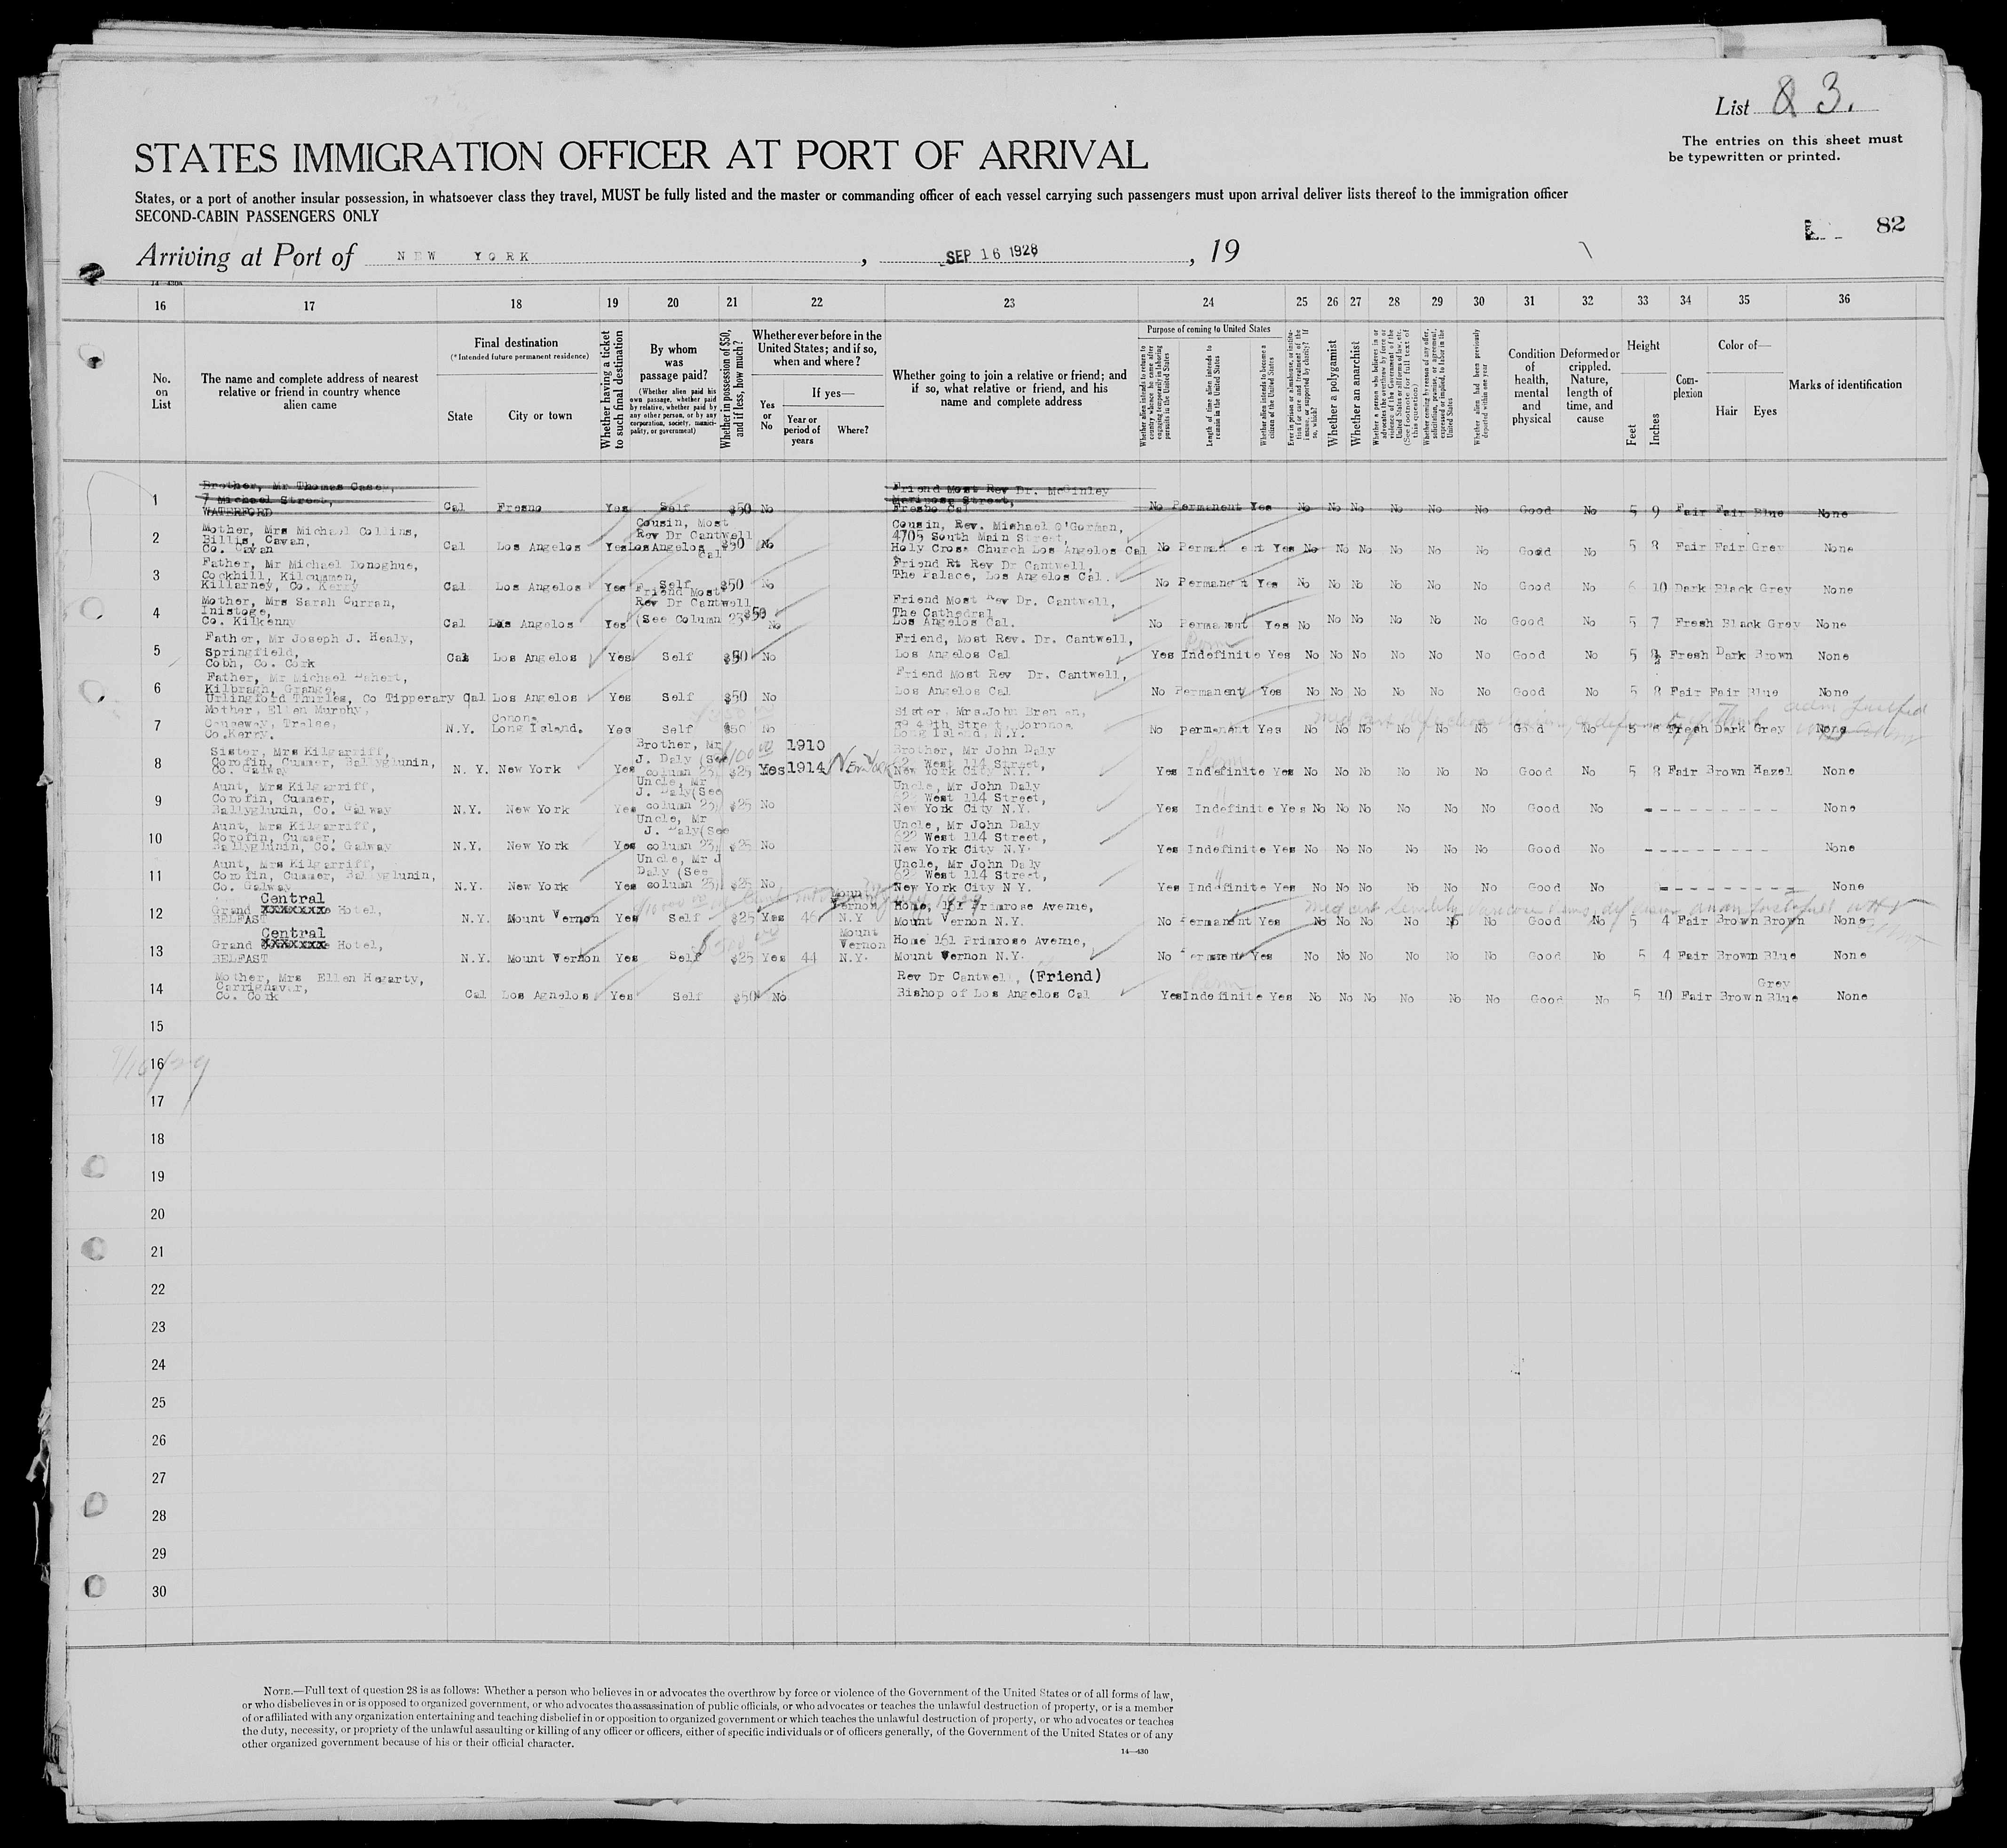 List 8 3.
The entries on this sheet must
be typewritten or printed.
STATES IMMIGRATION OFFICER AT PORT OF ARRIVAL
States, or a port of another insular possession, in whatsoever class they travel, MUST be fully listed and the master or commanding officer of each vessel carrying such passengers must upon arrival deliver lists thereof to the immigration officer
SECOND-CABIN PASSENGERS ONLY
82
Arriving at Port of NEW YORK, SEP 16 1928, 19
16 17 18 19 20 21 22 23 24 25 26 27 28 29 30 31 32 33 34 35 36
No. on List
The name and complete address of nearest relative or friend in country whence alien came
Final destination
(*Intended future permanent residence)
State
City or town
Whether having a ticket to such final destination
By whom was passage paid?
(Whether alien paid his own passage, whether paid by relative, whether paid by any other person, or by any corporation, society, municipality, or government)
Whether in possession of $50, and if less, how much?
Whether ever before in the United States; and if so, when and where?
Yes or No
If yes—
Year or period of years
Where?
Whether going to join a relative or friend; and if so, what relative or friend, and his name and complete address
Purpose of coming to United States
Whether alien intends to return to country whence he came after engaging temporarily in laboring pursuits in the United States
Length of time alien intends to remain in the United States
Whether alien intends to become a citizen of the United States
Ever in prison or almshouse, or institution for care and treatment of the insane, or supported by charity? If so, which?
Whether a polygamist
Whether an anarchist
Whether a person who believes in or advocates the overthrow by force or violence of the Government of the United States or all forms of law, etc. (See footnote for full text of this question)
Whether coming by reason of any offer, solicitation, promise, or agreement, expressed or implied, to labor in the United States
Whether alien had been previously deported within one year
Condition of health, mental and physical
Deformed or crippled. Nature, length of time, and cause
Height
Feet
Inches
Complexion
Color of—
Hair
Eyes
Marks of identification
1 Brother, Mr Thomas Casey, 7 Michael Street, WATERFORD Cal Fresno Yes Self $50 No Friend Most Rev Dr. McGinley Mariposa Street, Fresno Cal No Permanent Yes No No No No No No Good No 5 9 Fair Fair Blue None
2 Mother, Mrs Michael Collins, Billis, Cavan, Co. Cavan Cal Los Angelos Yes Cousin, Most Rev Dr Cantwell Los Angelos Cal $50 No Cousin, Rev. Michael O'Gorman, 4705 South Main Street, Holy Cross Church Los Angelos Cal No Permanent Yes No No No No No No Good No 5 8 Fair Fair Grey None
3 Father, Mr Michael Donoghue, Cockhill, Kilcummen, Killarney, Co. Kerry Cal Los Angelos Yes Self $50 No Friend Rt Rev Dr Cantwell, The Palace, Los Angelos Cal. No Permanent Yes No No No No No No Good No 6 10 Dark Black Grey None
4 Mother, Mrs Sarah Curran, Inistoge, Co. Kilkenny Cal Los Angelos Yes Friend Most Rev Dr Cantwell (See Column 23 $50 No Friend Most Rev Dr. Cantwell, The Cathedral Los Angelos Cal. No Permanent Yes No No No No No No Good No 5 7 Fresh Black Grey None
5 Father, Mr Joseph J. Healy, Springfield, Cobh, Co. Cork Cal Los Angelos Yes Self $50 No Friend, Most Rev. Dr. Cantwell, Los Angelos Cal Yes Indefinite Yes No No No No No No Good No 5 Fresh Dark Brown None
6 Father, Mr Michael Kilbragh, Grange, Urlingford Thurles, Co Tipperary Cal Los Angelos Yes Self $50 No Friend Most Rev Dr. Cantwell, Los Angelos Cal No Permanent Yes No No No No No No Good No 5 8 Fair Fair Blue None
7 Mother, Ellen Murphy, Causeway, Tralee, Co.Kerry. N.Y. Long Island. Yes Self $50 No Sister, Mrs.John 39 49th Street, Corona, Long Island, N.Y. No Permanent Yes No No No No No No Good No 5 Fresh Dark Grey None
8 Sister, Mrs Kilgarriff, Corofin, Cummer, Ballyglunin, Co. Galway N. Y. New York Yes Brother, Mr J. Daly (See column 23) $25 Yes 1910 1914 New York Brother, Mr John Daly 622 West 114 Street, New York City N.Y. Yes Indefinite Yes No No No No No No Good No 5 8 Fair Brown Hazel None
9 Aunt, Mrs Kilgarriff, Corofin, Cummer, Ballyglunin, Co. Galway N.Y. New York Yes Uncle, Mr J. Daly(See column 23) $25 No Uncle, Mr John Daly 622 West 114 Street, New York City N.Y. Yes Indefinite Yes No No No No No No Good No None
10 Aunt, Mrs Kilgarriff, Corofin, Cummer, Ballyglunin, Co. Galway N.Y. New York Yes Uncle, Mr J. Daly(See column 23) $25 No Uncle, Mr John Daly 622 West 114 Street, New York City N.Y. Yes Indefinite Yes No No No No No No Good No None
11 Aunt, Mrs Kilgarriff, Corofin, Cummer, Ballyglunin, Co. Galway N.Y. New York Yes Uncle, Mr J Daly (See column 23) $25 No Uncle, Mr John Daly 622 West 114 Street, New York City N Y. Yes Indefinite Yes No No No No No No Good No None
12 Grand Central Hotel, BELFAST N.Y. Mount Vernon Yes Self $25 Yes 46 Mount Vernon N.Y Home, 161 Primrose Avenue, Mount Vernon N.Y. No Permanent Yes No No No No No No Good No 5 4 Fair Brown Brown None
13 Grand Central Hotel, BELFAST N.Y. Mount Vernon Yes Self $25 Yes 44 Mount Vernon N.Y. Home 161 Primrose Avenue, Mount Vernon N.Y. No Permanent Yes No No No No No No Good No 5 4 Fair Brown Blue None
14 Mother, Mrs Ellen Hegarty, Carrignavar, Co. Cork Cal Los Agnelos Yes Self $50 No Rev Dr Cantwell, (Friend) Bishop of Los Angelos Cal Yes Indefinite Yes No No No No No No Good No 5 10 Fair Brown Grey Blue None
15
16
17
18
19
20
21
22
23
24
25
26
27
28
29
30
NOTE.—Full text of question 28 is as follows: Whether a person who believes in or advocates the overthrow by force or violence of the Government of the United States or of all forms of law,
or who disbelieves in or is opposed to organized government, or who advocates the assassination of public officials, or who advocates or teaches the unlawful destruction of property, or is a member
of or affiliated with any organization entertaining and teaching disbelief in or opposition to organized government or which teaches the unlawful destruction of property, or who advocates or teaches
the duty, necessity, or propriety of the unlawful assaulting or killing of any officer or officers, either of specific individuals or of officers generally, of the Government of the United States or of any
other organized government because of his or their official character.
14—430